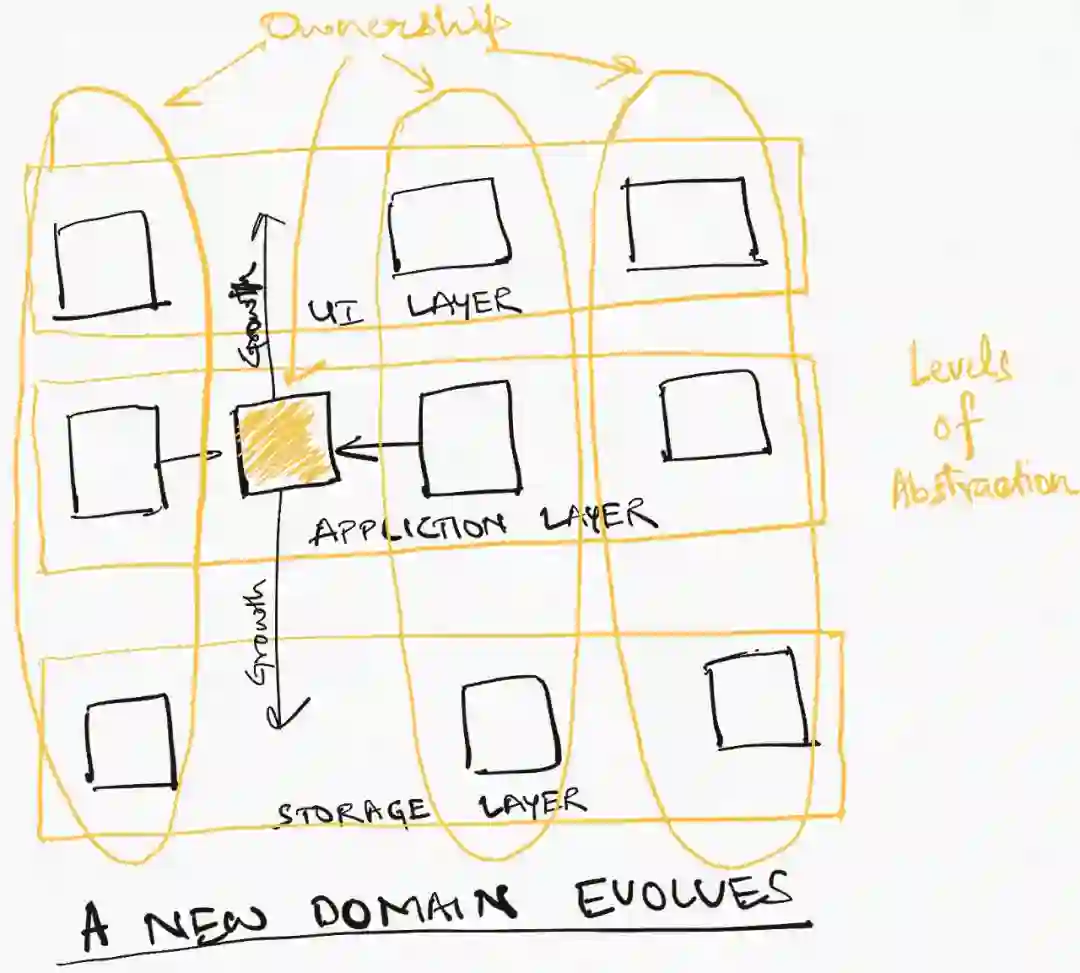 Ownership
Growth
UI LAYER
Levels
of
Abstraction
APPLICTION LAYER
Growth
STORAGE LAYER
A NEW DOMAIN EVOLVES